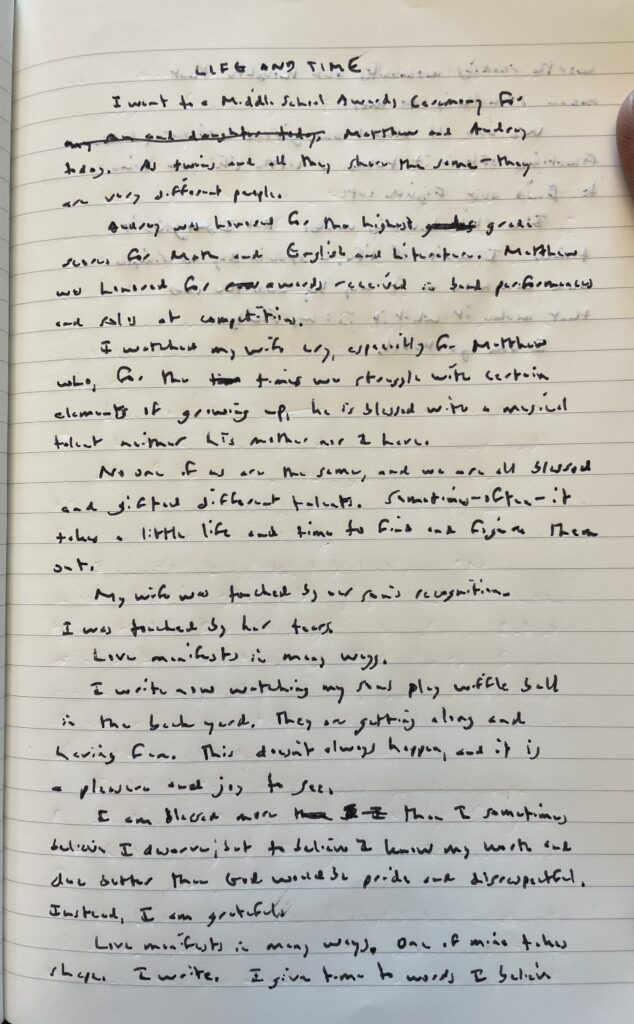 LIFE AND TIME
I went to a Middle School Awards Ceremony for
my son and daughter today, Matthew and Audrey
today. As twins and all they share the same – they
are very different people.
Audrey was honored for the highest grade
scores for Math and English and Literature. Matthew
was honored for awards received in band performances
and solos at competition.
I watched my wife cry, especially for Matthew
who, for the times we struggle with certain
elements of growing up, he is blessed with a musical
talent neither his mother nor I have.
No one of us are the same, and we are all blessed
and gifted different talents. Sometimes – often – it
takes a little life and time to find and figure them
out.
My wife was touched by our son's recognition.
I was touched by her tears.
Love manifests in many ways.
I write now watching my sons play wiffle ball
in the back yard. They are getting along and
having fun. This doesn't always happen, and it is
a pleasure and joy to see.
I am blessed more than I sometimes
believe I deserve; but to believe I know my worth and
due better than God would be pride and disrespectful.
Instead, I am grateful.
Love manifests in many ways. One of mine takes
shape. I write. I give time to words I believe